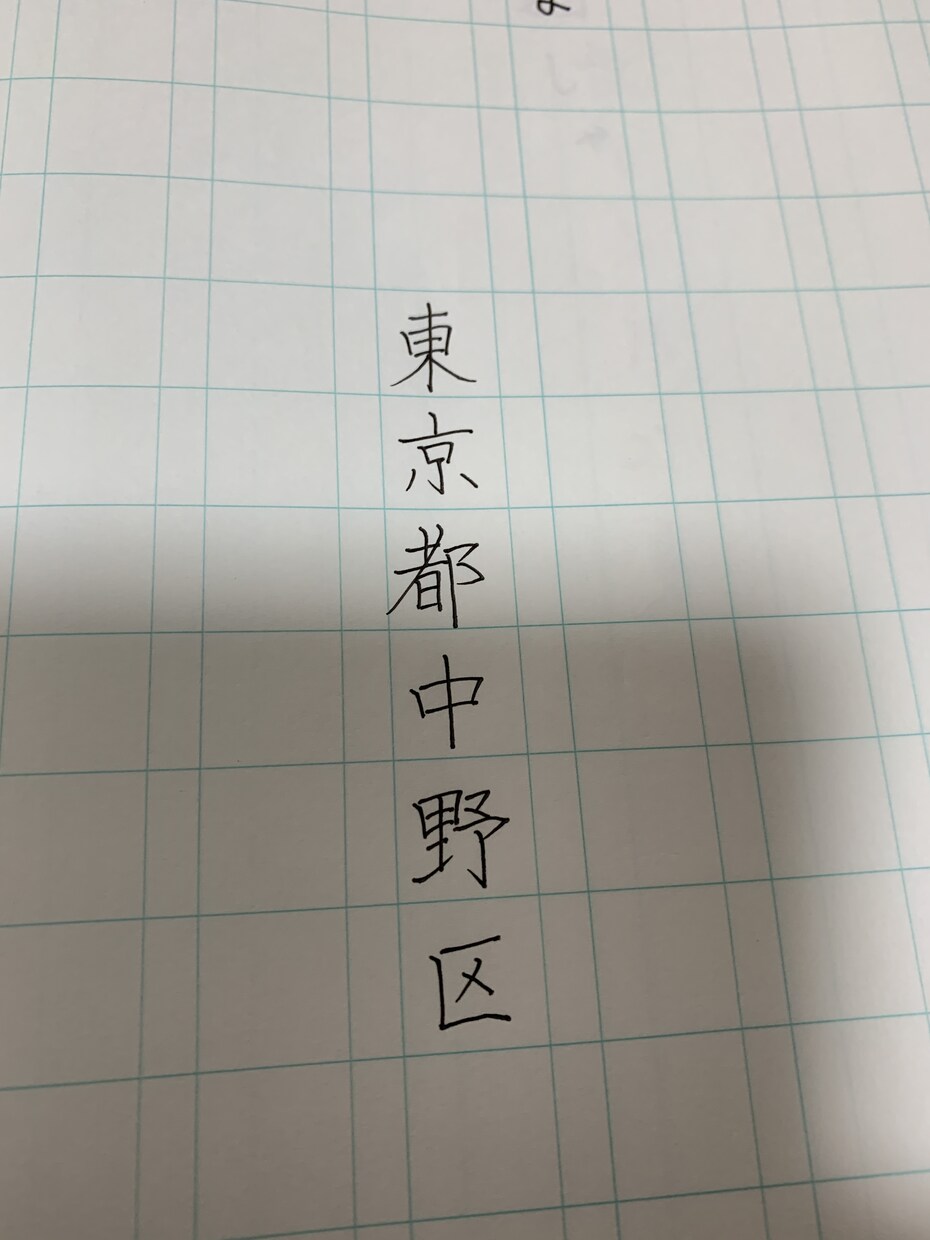 東京都中野区